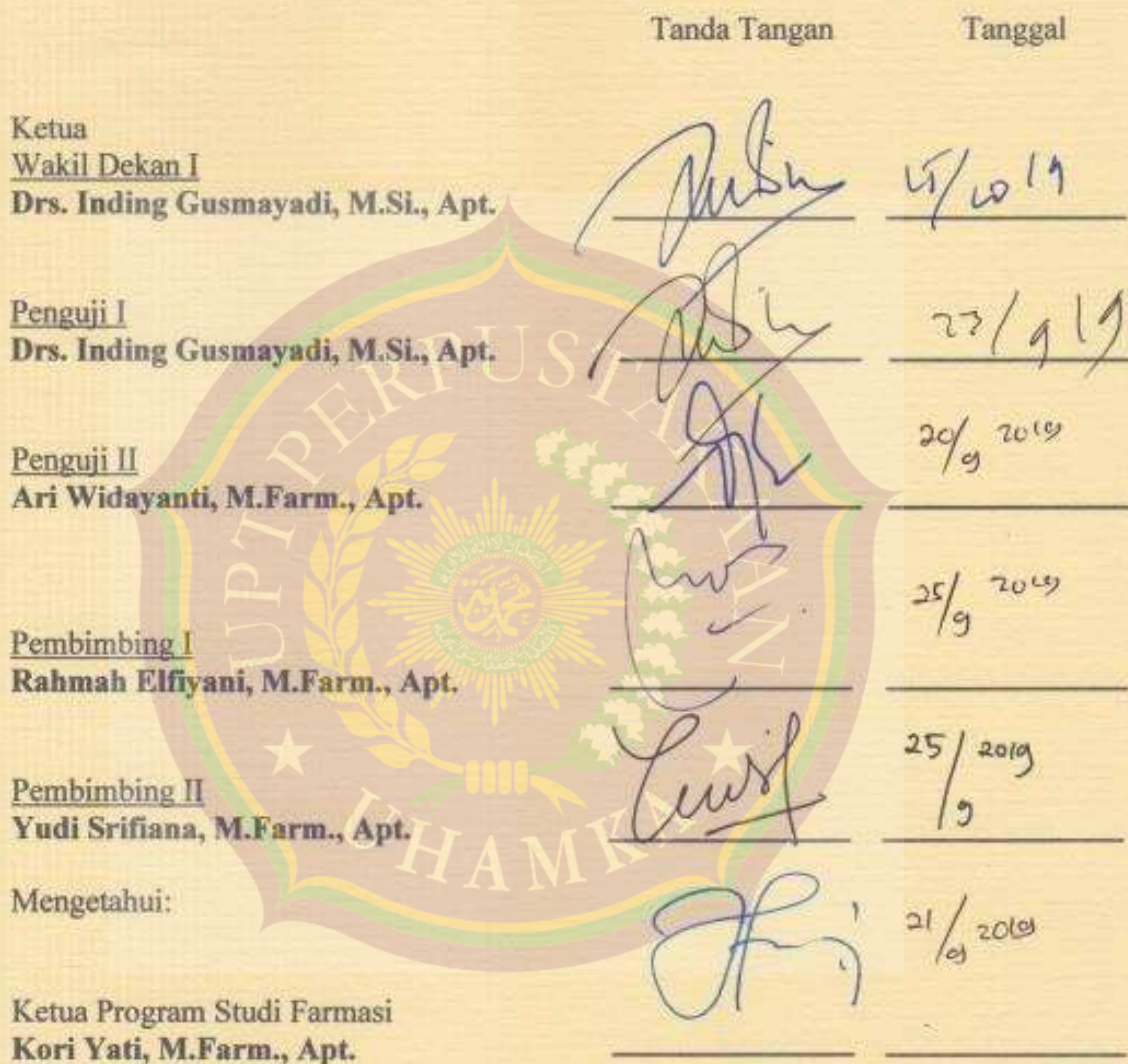 Tanda Tangan Tanggal
Ketua
Wakil Dekan I
Drs. Inding Gusmayadi, M.Si., Apt.
Penguji I
Drs. Inding Gusmayadi, M.Si., Apt. 23/9 19
Penguji II 20/9 2019
Ari Widayanti, M.Farm., Apt.
25/9 2019
Pembimbing I
Rahmah Elfiyani, M.Farm., Apt.
25/9 2019
Pembimbing II
Yudi Srifiana, M.Farm., Apt.
Mengetahui:
21/9 2019
Ketua Program Studi Farmasi
Kori Yati, M.Farm., Apt.
UPT PERPUSTAKAAN
UHAMKA